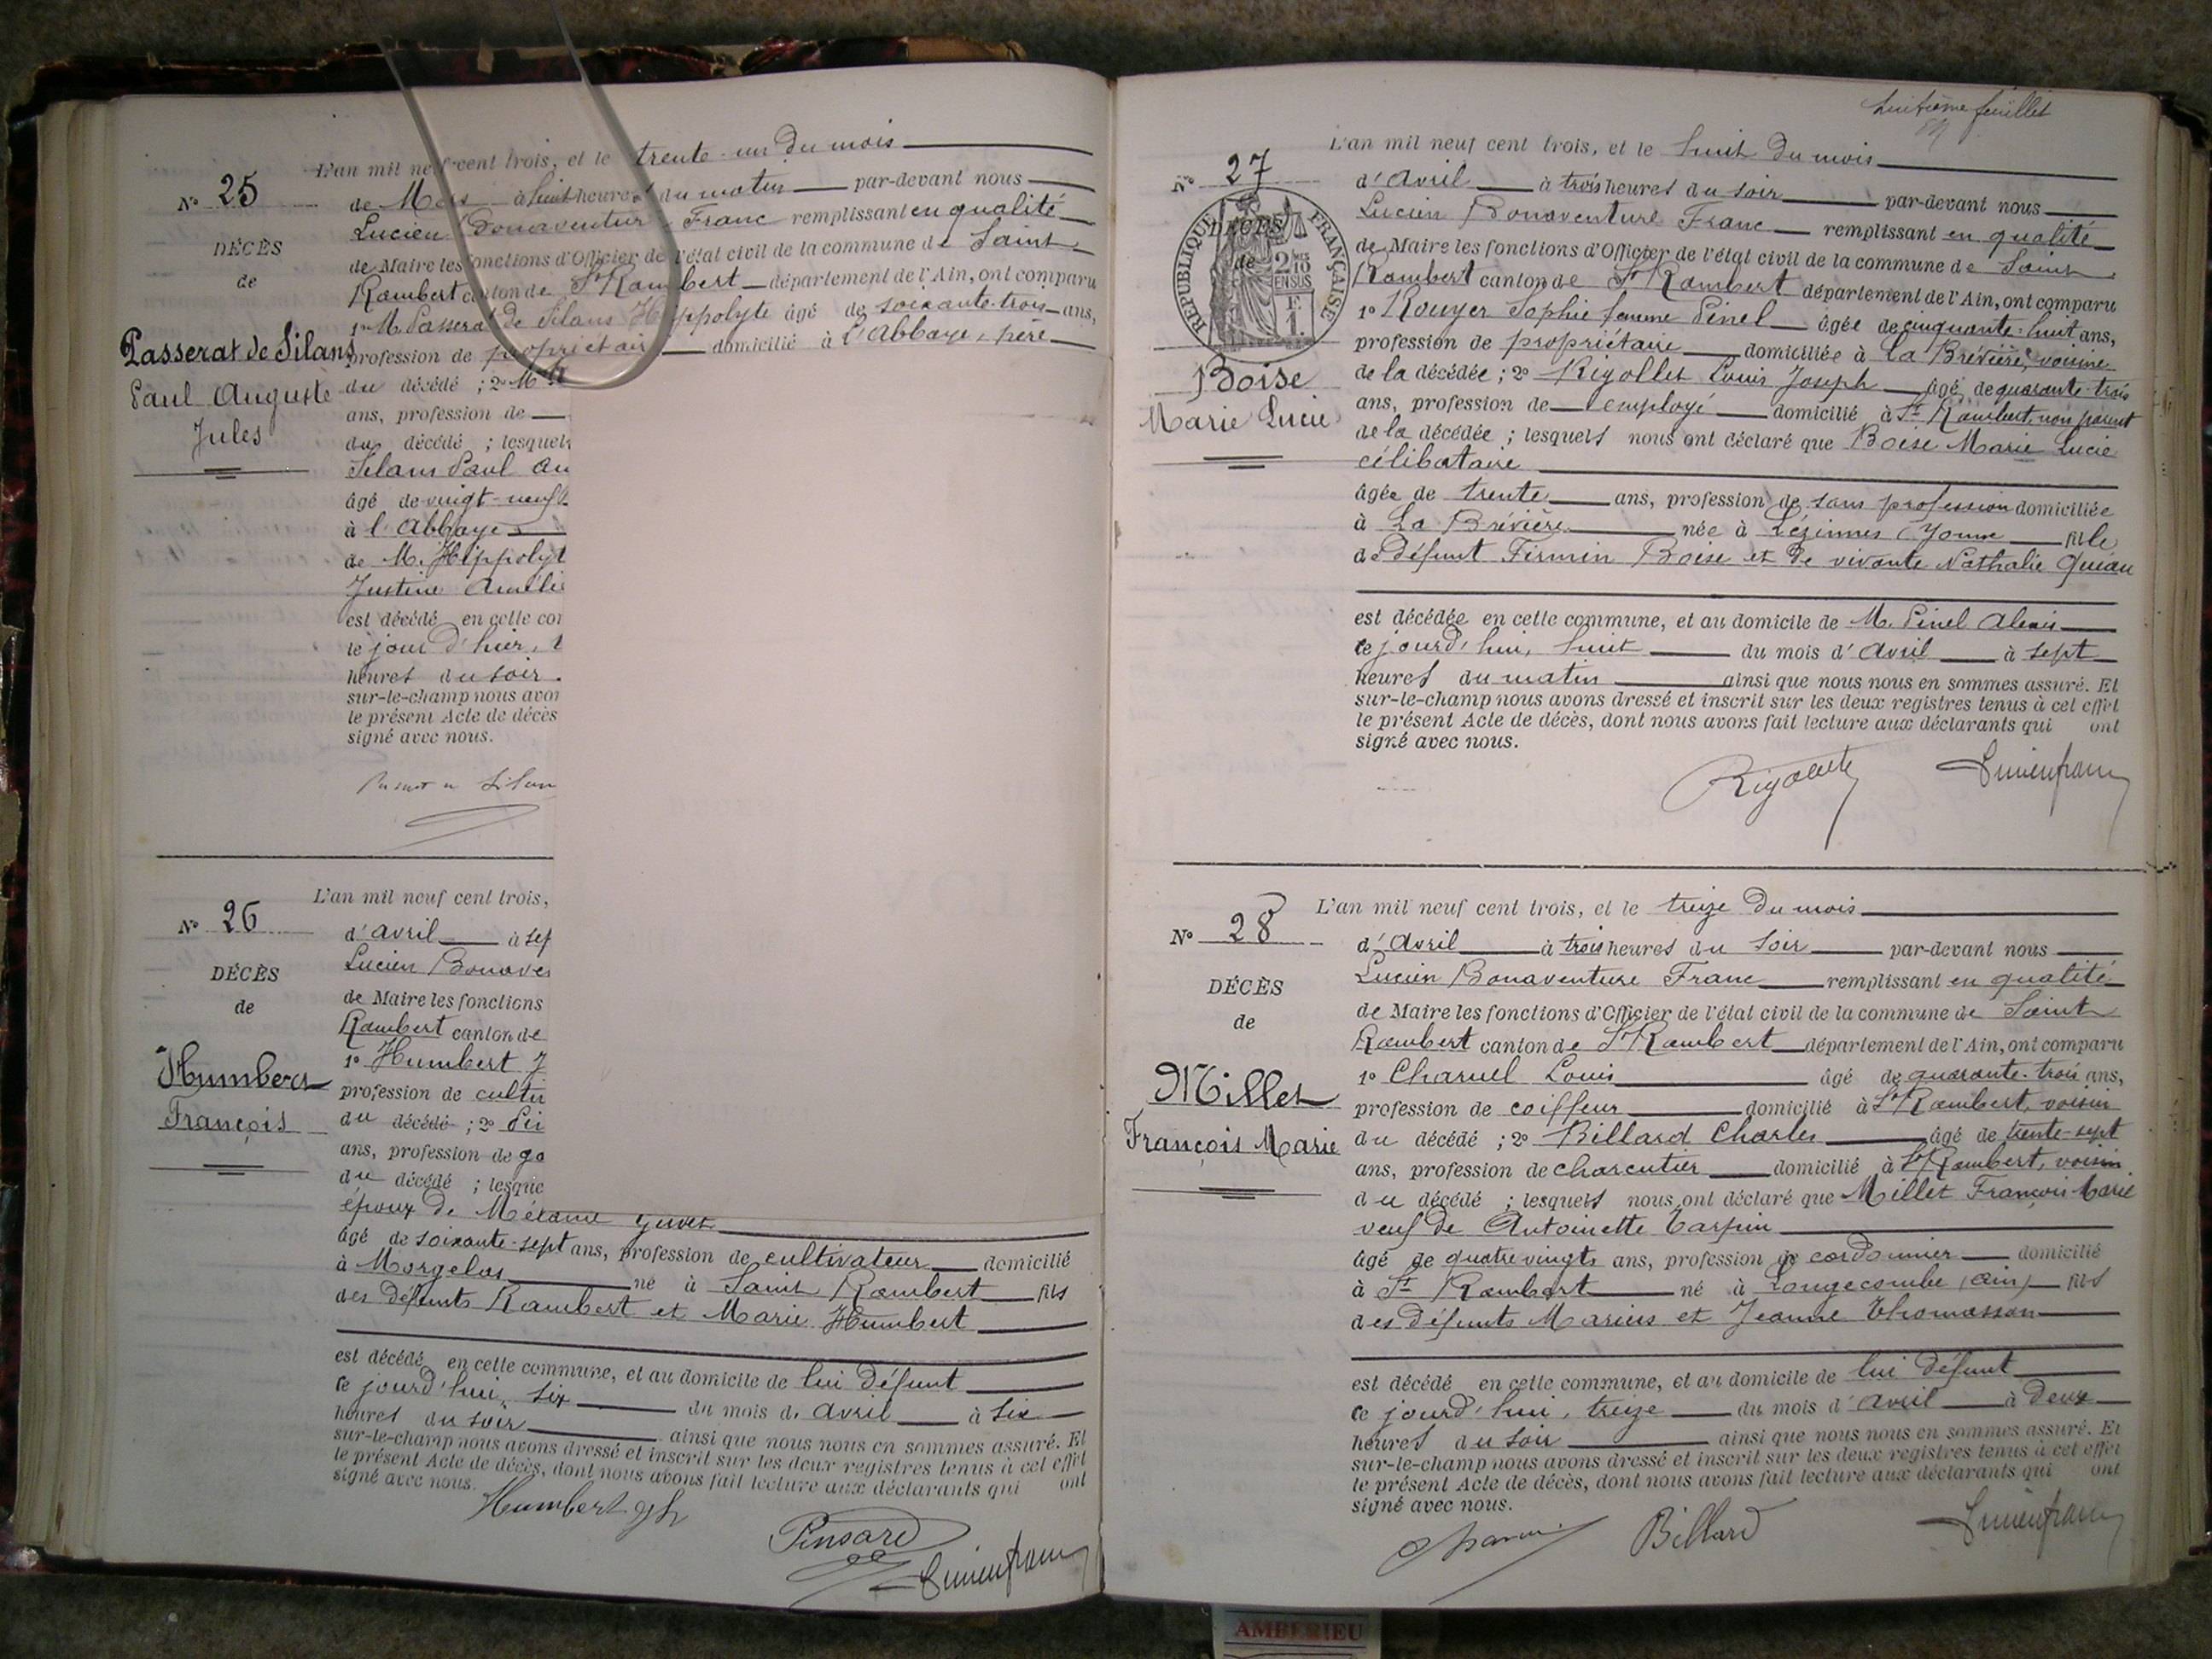 N° 25
DÉCÈS
de
Passerat de Silans
Paul Auguste
Jules
L'an mil neuf cent trois, et le trente-un du mois
de Mars à huit heures du matin par-devant nous
Lucien Bonaventure Franc remplissant en qualité
de Maire les fonctions d'Officier de l'état civil de la commune de Saint
Rambert canton de St Rambert département de l'Ain, ont comparu
1° M. Passerat de Silans Hippolyte âgé de soixante-trois ans,
profession de propriétaire domicilié à l'Abbaye, père
du décédé ; 2° M
ans, profession de
du décédé ; lesquels
Silans Paul Au
âgé de vingt-neuf
à l'Abbaye
de M. Hippolyt
Justine Amélie
est décédé en cette com
le jour d'hier, t
heures du soir
sur-le-champ nous avon
le présent Acte de décès
signé avec nous.
N° 26
DÉCÈS
de
Humbert
François
L'an mil neuf cent trois,
d'avril à sep
Lucien Bonaven
de Maire les fonctions
Rambert canton de
1° Humbert J
profession de cultiv
du décédé ; 2°
ans, profession de ga
du décédé ; lesque
époux de Mélanie
âgé de soixante-sept ans, profession de cultivateur domicilié
à Morgelas né à Saint Rambert fils
des défunts Rambert et Marie Humbert
est décédé en cette commune, et au domicile de lui défunt
ce jourd'hui, six du mois d'avril à six
heures du soir ainsi que nous nous en sommes assuré. Et
sur-le-champ nous avons dressé et inscrit sur les deux registres tenus à cet effet
le présent Acte de décès, dont nous avons fait lecture aux déclarants qui ont
signé avec nous.
Humbert
Pinsard
Lucien Franc
huitième feuillet
N° 27
RÉPUBLIQUE FRANÇAISE
DÉCÈS
de
2/10
EN SUS
F.
1.
Boise
Marie Lucie
L'an mil neuf cent trois, et le huit du mois
d'avril à trois heures du soir par-devant nous
Lucien Bonaventure Franc remplissant en qualité
de Maire les fonctions d'Officier de l'état civil de la commune de Saint
Rambert canton de St Rambert département de l'Ain, ont comparu
1° Rouyer Sophie femme Pinel âgée de cinquante-huit ans,
profession de propriétaire domiciliée à La Brévière, voisine
de la décédée ; 2° Rigollet Louis Joseph âgé de quarante-trois
ans, profession de employé domicilié à St Rambert, non parent
de la décédée ; lesquels nous ont déclaré que Boise Marie Lucie
célibataire
âgée de trente ans, profession de sans profession domiciliée
à La Brévière née à Lézinnes (Yonne fille
de Défunt Firmin Boise et de vivante Nathalie
est décédée en cette commune, et au domicile de M. Pinel Alexis
ce jourd'hui, huit du mois d'avril à sept
heures du matin ainsi que nous nous en sommes assuré. Et
sur-le-champ nous avons dressé et inscrit sur les deux registres tenus à cet effet
le présent Acte de décès, dont nous avons fait lecture aux déclarants qui ont
signé avec nous.
Rigollet
Lucien Franc
N° 28
DÉCÈS
de
Millet
François Marie
L'an mil neuf cent trois, et le treize du mois
d'avril à trois heures du soir par-devant nous
Lucien Bonaventure Franc remplissant en qualité
de Maire les fonctions d'Officier de l'état civil de la commune de Saint
Rambert canton de St Rambert département de l'Ain, ont comparu
1° Charuel Louis âgé de quarante-trois ans,
profession de coiffeur domicilié à St Rambert, voisin
du décédé ; 2° Billard Charles âgé de trente-sept
ans, profession de charcutier domicilié à St Rambert, voisin
du décédé ; lesquels nous ont déclaré que Millet François Marie
veuf de Antoinette Tarpin
âgé de quatre vingts ans, profession de cordonnier domicilié
à St Rambert né à Longecombe (Ain) fils
des défunts Marius et Jeanne Thomasson
est décédé en cette commune, et au domicile de lui défunt
ce jourd'hui, treize du mois d'avril à deux
heures du soir ainsi que nous nous en sommes assuré. Et
sur-le-champ nous avons dressé et inscrit sur les deux registres tenus à cet effet
le présent Acte de décès, dont nous avons fait lecture aux déclarants qui ont
signé avec nous.
Billard
Lucien Franc
AMBERIEU